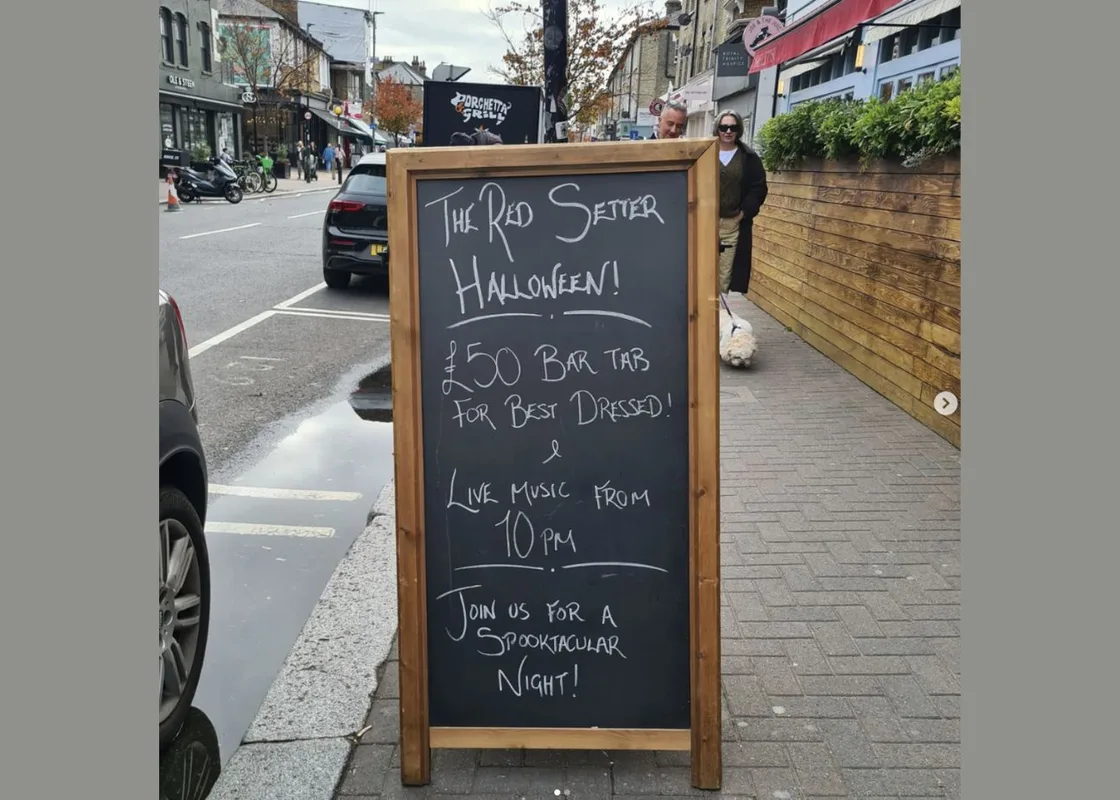 OLE & STEEN
PORCHETTA
GRILL
ROYAL
TRINITY
HOSPICE
THE RED SETTER
HALLOWEEN!
£50 BAR TAB
FOR BEST DRESSED!
&
LIVE MUSIC FROM
10PM
JOIN US FOR A
SPOOKTACULAR
NIGHT!